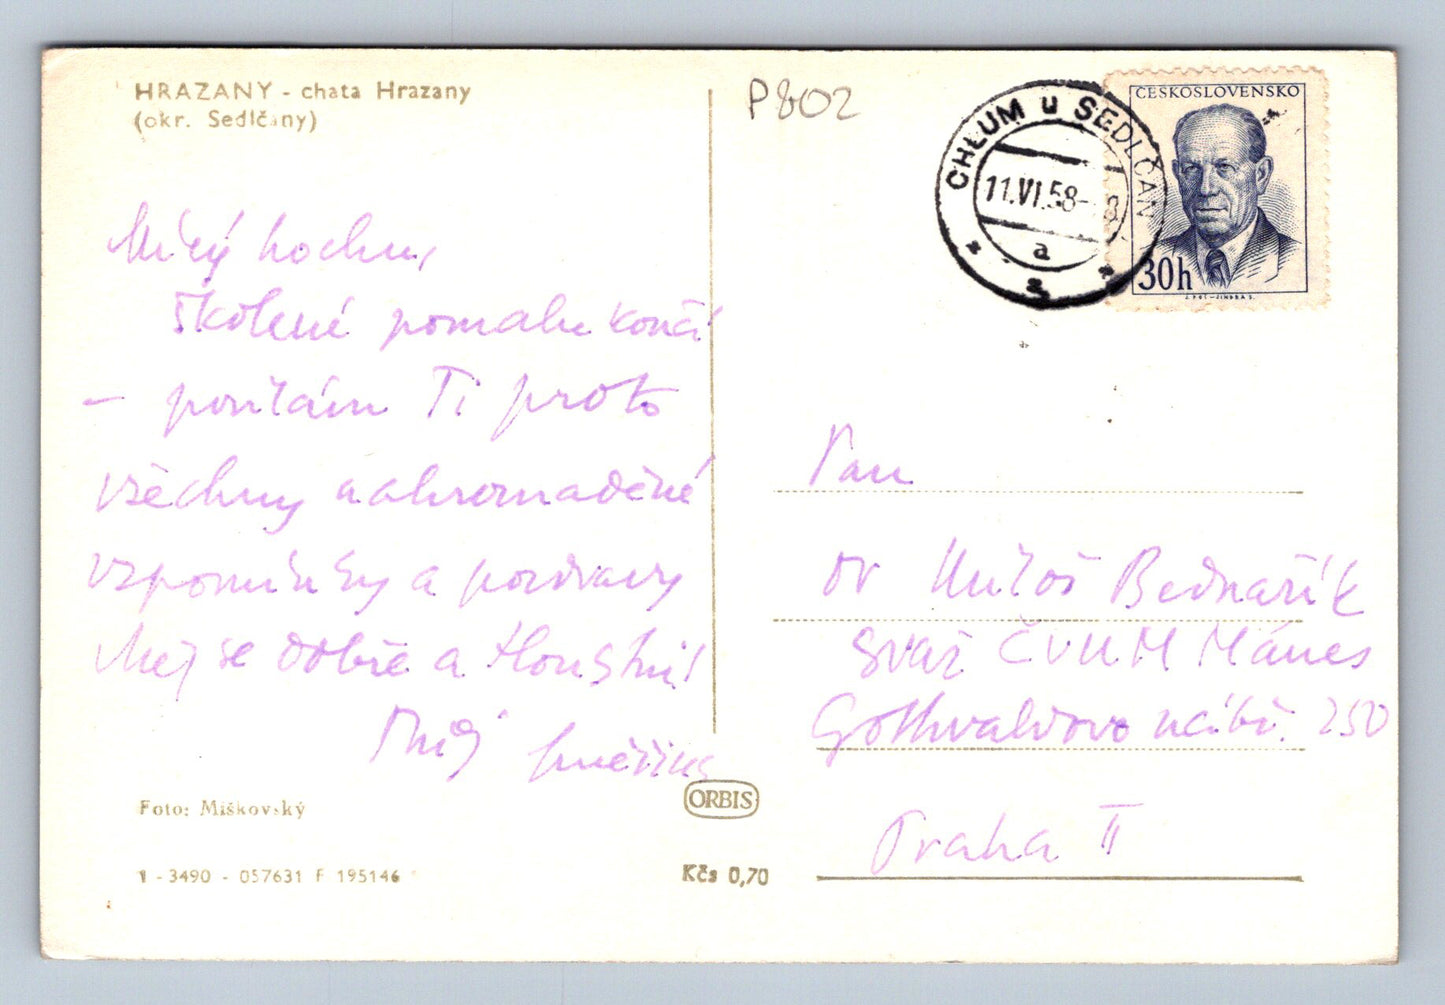 HRAZANY - chata Hrazany
(okr. Sedlčany)
P802
CHLUM u SEDLČAN
11.VI.58- 8
a
ČESKOSLOVENSKO
30h
Milý hochu,
školení pomalu končí
– posílám Ti proto
všechny nahromaděné
vzpomínky a pozdravy
Měj se dobře a tloustni!
Tvůj
Pan
Dr Miloš Bednařík
Svaz ČVUM Mánes
Gottwaldovo nábř. 250
Praha II
Foto: Miškovský
ORBIS
1 - 3490 - 057631 F 195146
Kčs 0,70